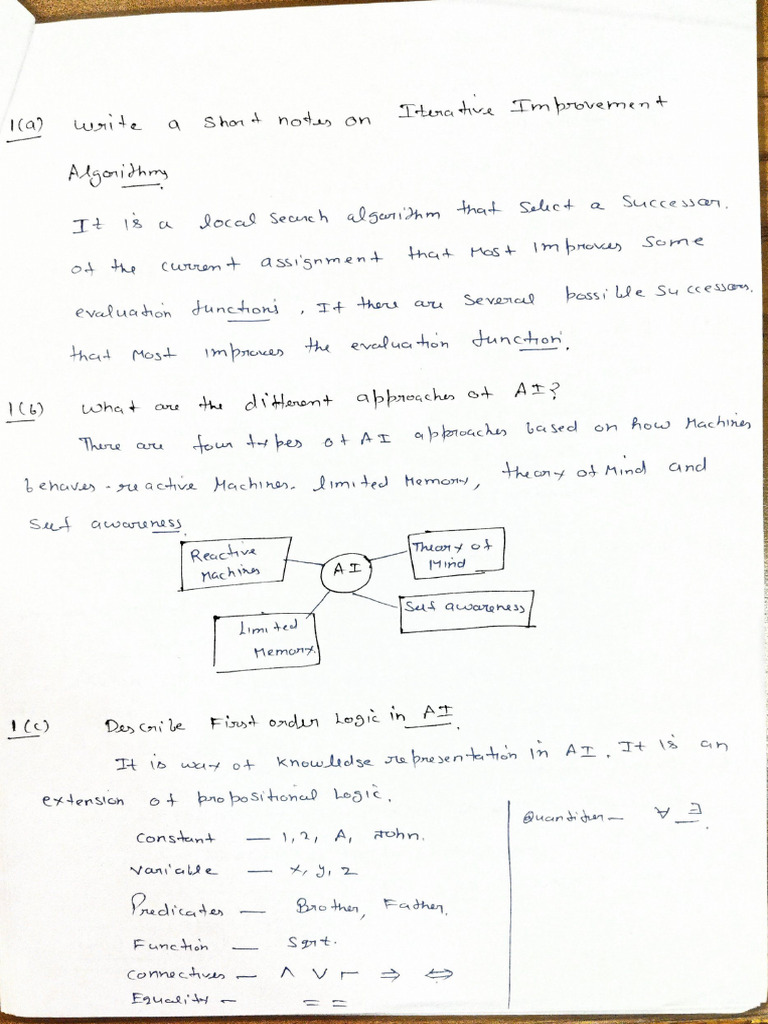 1(a) Write a short notes on Iterative Improvement
Algorithms
It is a local search algorithm that select a successor.
of the current assignment that most improves some
evaluation functions, If there are several possible successors.
that most improves the evaluation function.
1(b) What are the different approaches of AI?
There are four types of AI approaches based on how Machines
behaves - reactive Machines. limited Memory, theory of Mind and
Self awareness.
Reactive
Machines
AI
Theory of
Mind
Limited
Memory.
Self awareness
1(c) Describe First order Logic in AI.
It is way of knowledge representation in AI. It is an
extension of propositional Logic.
Constant — 1, 2, A, John.
Variable — x, y, z
Predicates — Brother, Father.
Function — Sqrt.
Connectives — ∧ ∨ ⌐ ⇒ ⇔
Equality — = =
Quantifier — ∀ ∃.